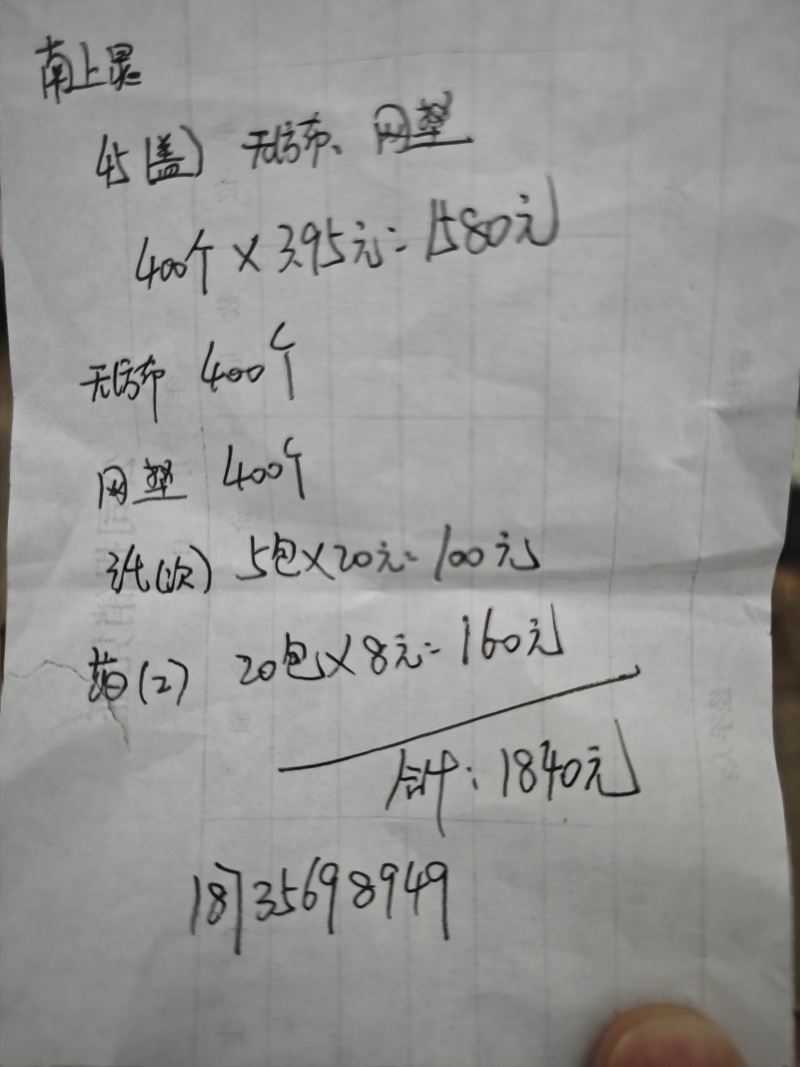 南上晨
45(盖) 无纺布、网垫
400个×3.95元=1580元
无纺布 400个
网垫 400个
5包×20元=100元
菌(2) 20包×8元=160元
合计:1840元
18735698949